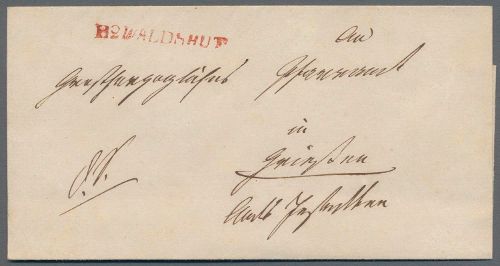 HOWALDSHUT
An
Grosherzogliches Pfarramt
in
Grießen
Amts Jestetten